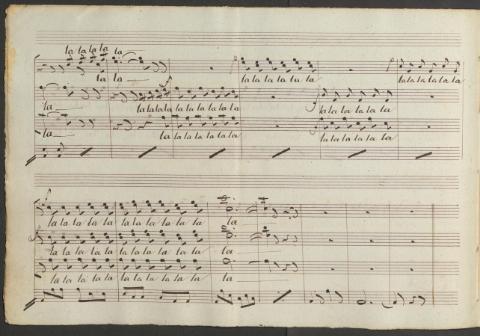 la la la la la
la la la la la la la la la la la la la la
la la la la la la la la la la la la la la la
la la la la la la la la la la la la la la
la la la la la la la la la la la la la
la la la la la la la la la la la la la
la la la la la la la la la la la la la